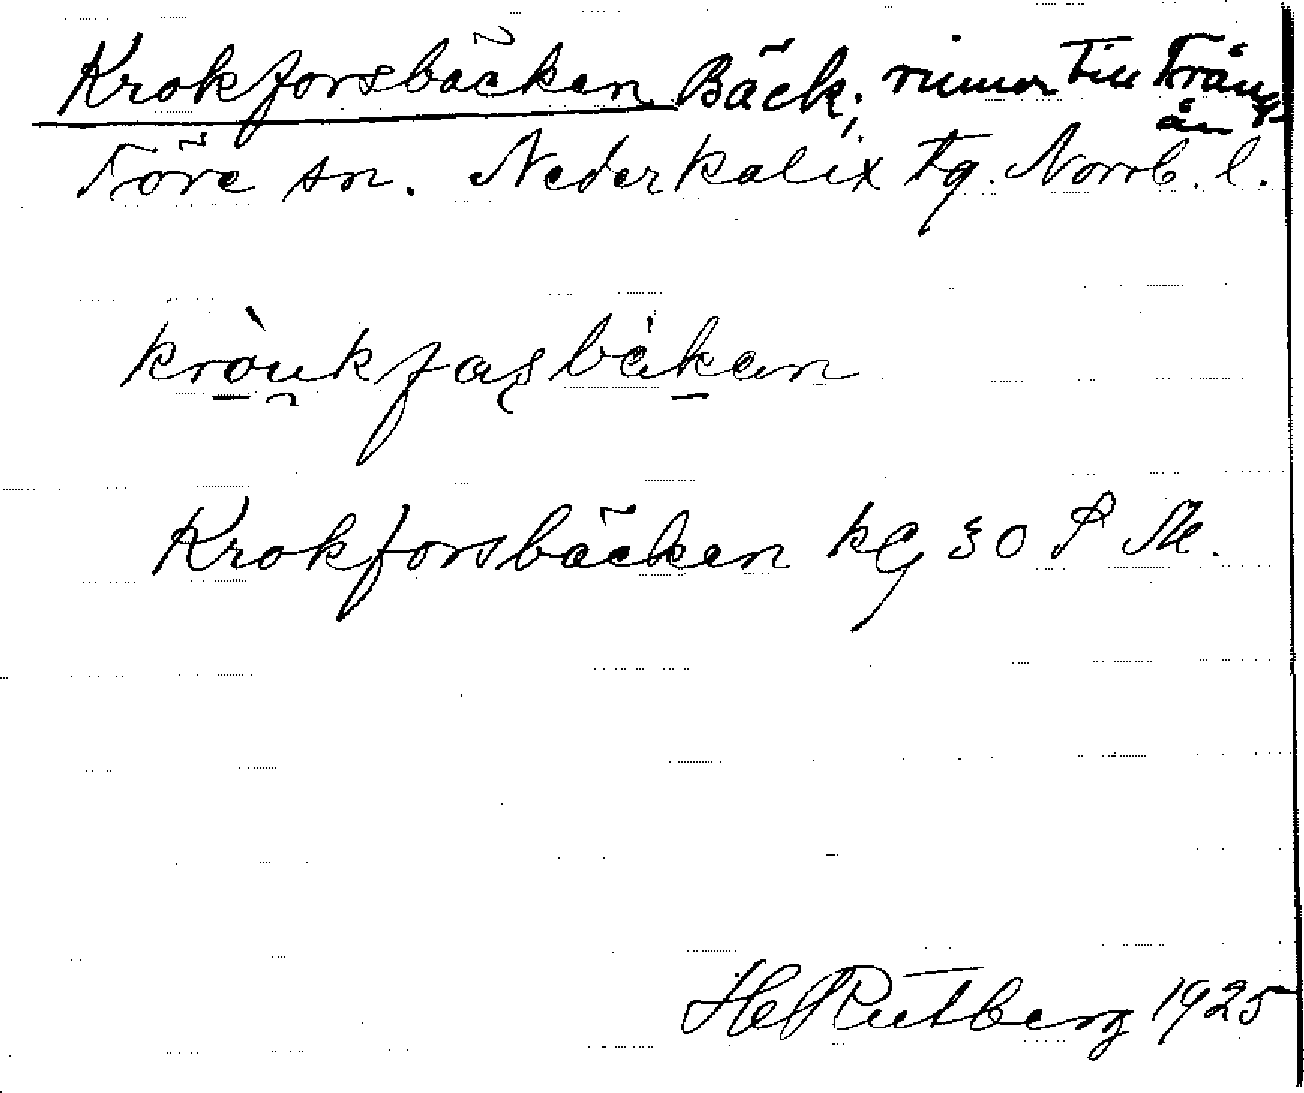 Krokforsbäcken Bäck; rinner till Trång-
ån
Töre sn. Nederkalix tg. Norrb. l.
kròu̯kfas̨bèkan
Krokforsbäcken kg 30 S
He Rutberg 1925